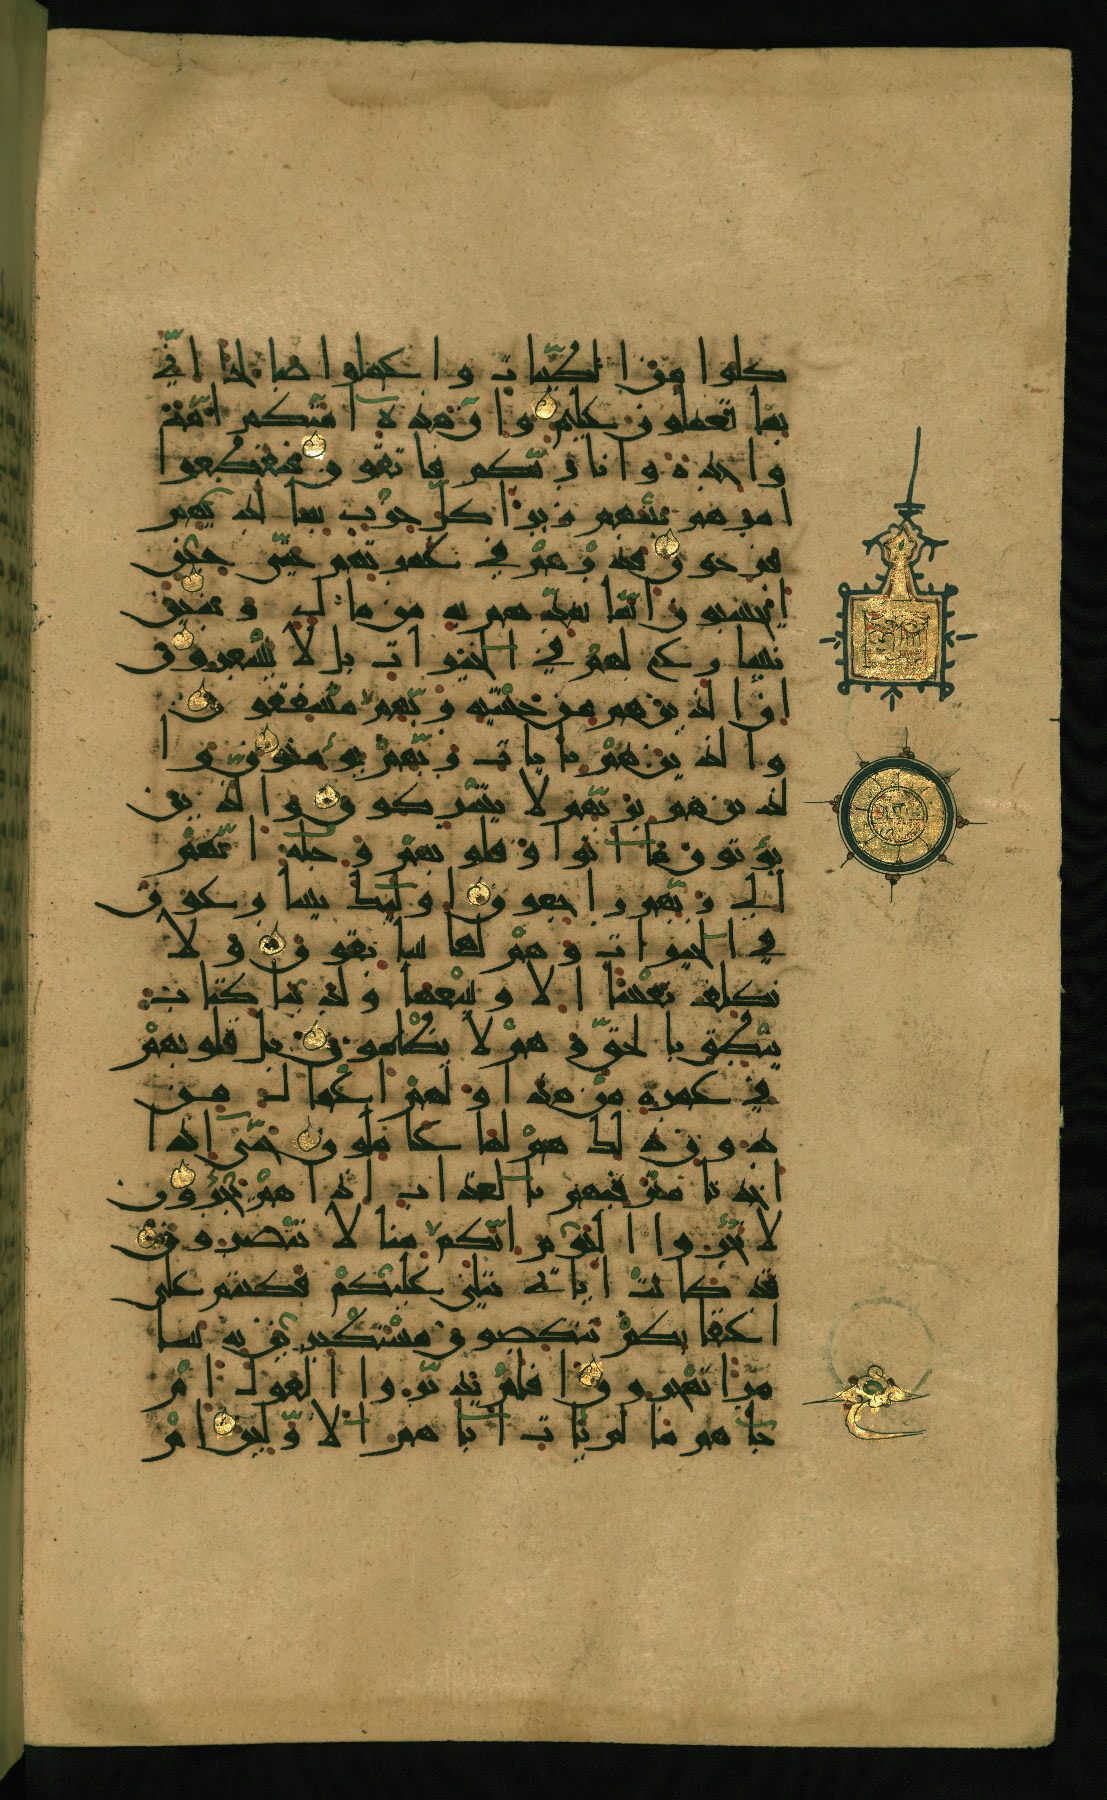 كلوا من الطيبات واعملوا صالحا اني
بما تعملون عليم وان هذه امتكم امة
واحدة وانا ربكم فاتقون فتقطعوا
امرهم بينهم زبرا كل حزب بما لديهم
فرحون فذرهم في غمرتهم حتى حين
ايحسبون انما نمدهم به من مال وبنين
نسارع لهم في الخيرات بل لا يشعرون
ان الذين هم من خشية ربهم مشفقون
والذين هم بايات ربهم يؤمنون وا
لذين هم بربهم لا يشركون والذين
يؤتون ما اتوا وقلوبهم وجلة انهم
الى ربهم راجعون اولئك يسارعون
في الخيرات وهم لها سابقون ولا
نكلف نفسا الا وسعها ولدينا كتاب
ينطق بالحق وهم لا يظلمون بل قلوبهم
في غمرة من هذا ولهم اعمال من
دون ذلك هم لها عاملون حتى اذا
اخذنا مترفيهم بالعذاب اذا هم يجئرون
لا تجئروا اليوم انكم منا لا تنصرون
قد كانت اياتي تتلى عليكم فكنتم على
اعقابكم تنكصون مستكبرين به سا
مرا تهجرون افلم يدبروا القول ام
جاهم ما لم يات اباهم الاولين ام